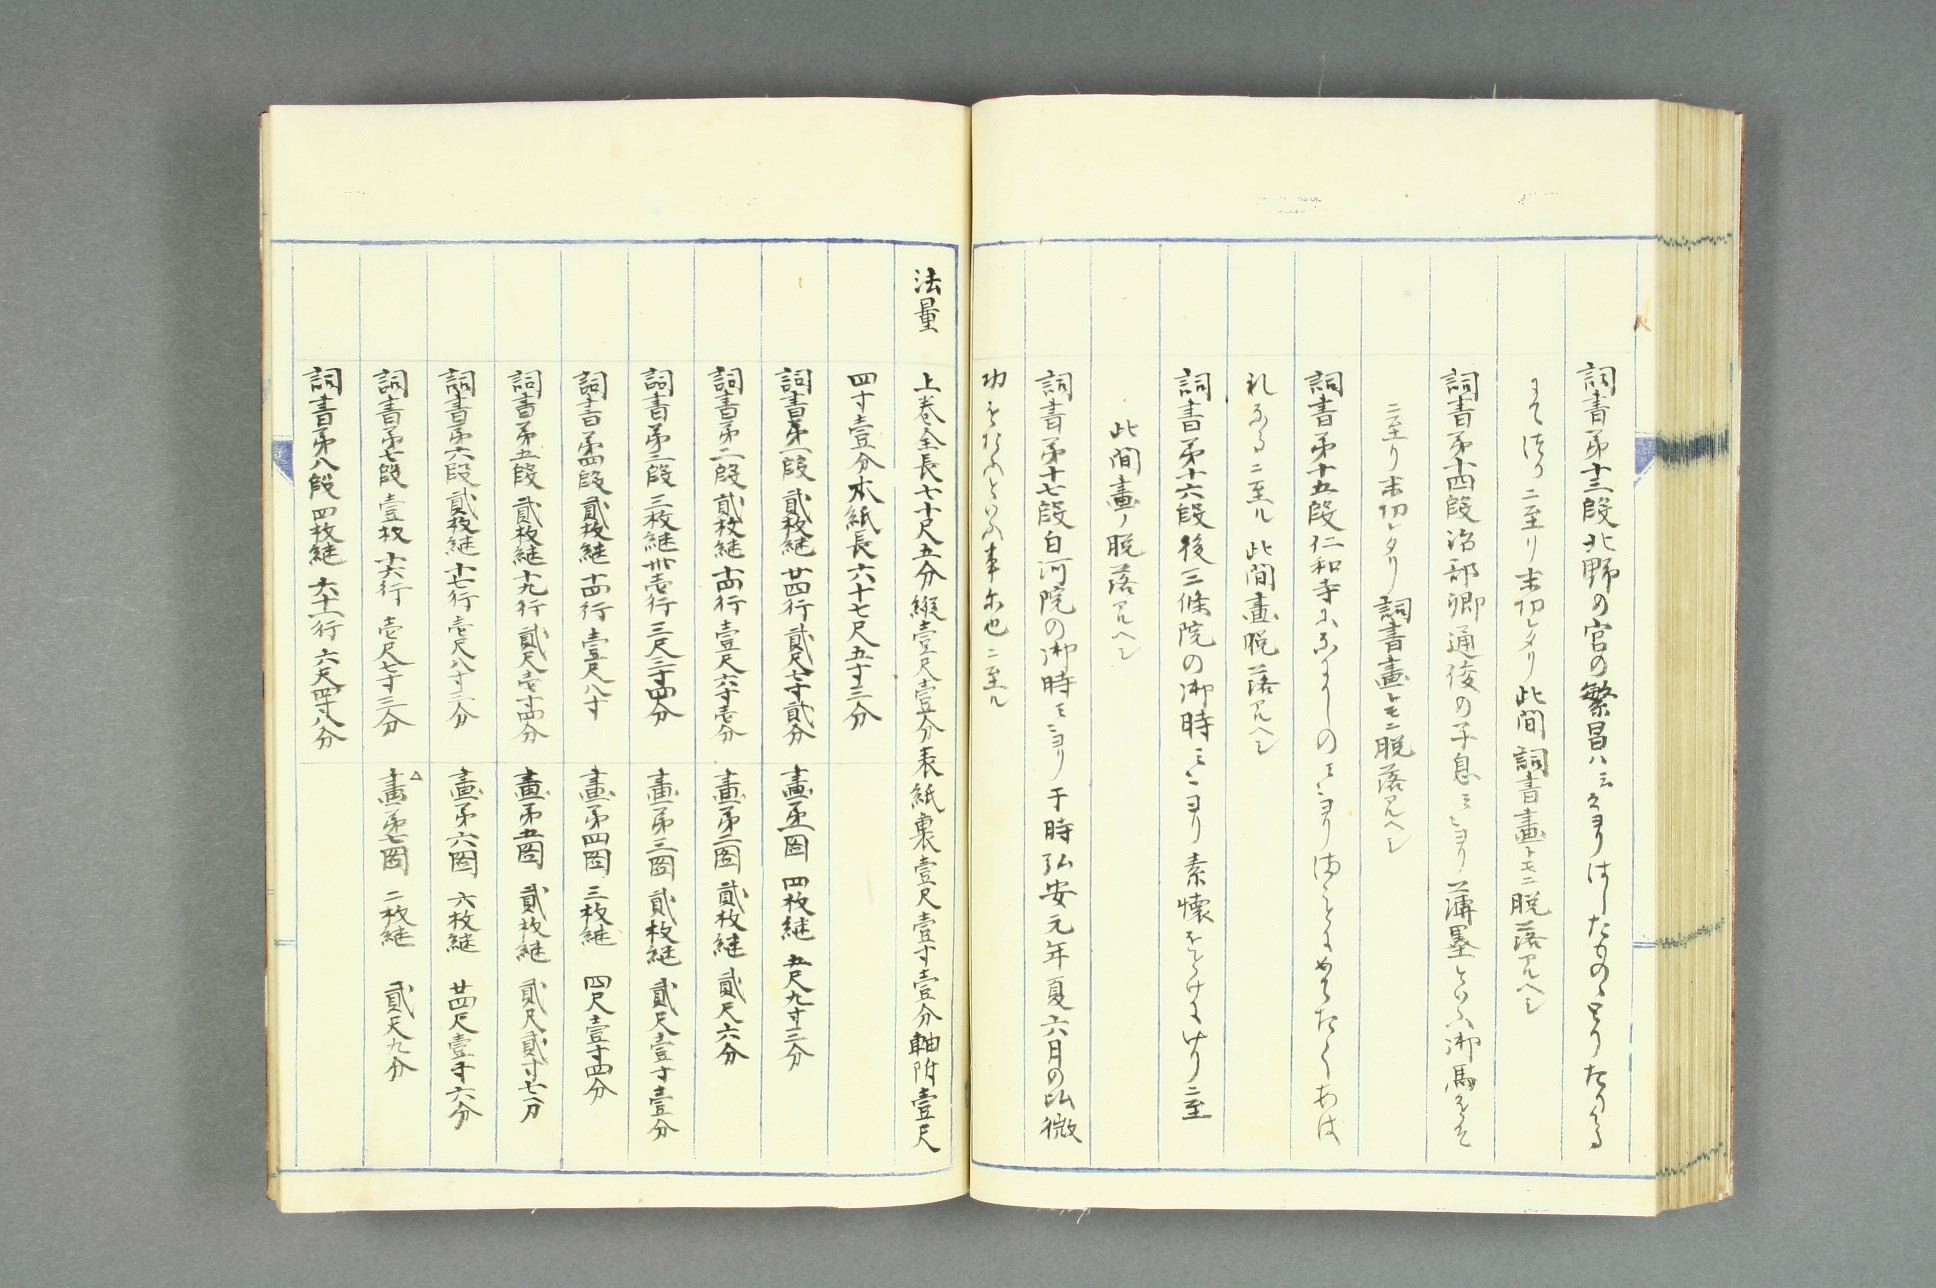 詞書第十三段北野の宮の繁昌ハミヨリはしたもの
ニ至リ末切レタリ此間詞書畫トモニ脱落アルヘシ
詞書第十四段治部卿通俊の子息ミヨリ薄墨といふ御馬をそ
ニ至リ末切レタリ詞書畫トモニ脱落アルヘシ
詞書第十五段仁和寺
ニ至ル此間畫脱落アルヘシ
詞書第十六段後三條院の御時ミヨリ素懐をとけにけりニ至
此間畫ノ脱落アルヘシ
詞書第十七段白河院の御時ミヨリ于時弘安元年夏六月の比微
功をおふといふ事尓也ニ至ル
法量
上巻全長七十尺五分縦壹尺壹分表紙裏壹尺壹寸壹分軸附壹尺
四寸壹分本紙長六十七尺五寸三分
詞書第一段 貳枚継 廿四行 貳尺七寸貳分 畫第一圖 四枚継 五尺九寸三分
詞書第二段 貳枚継 十四行 壹尺六寸壱分 畫第二圖 貳枚継 貳尺六分
詞書第三段 三枚継 卅壱行 三尺三寸四分 畫第三圖 貳枚継 貳尺壹寸壹分
詞書第四段 貳枚継 十四行 壹尺八寸 畫第四圖 三枚継 四尺壹寸四分
詞書第五段 貳枚継 十九行 貳尺壱寸四分 畫第五圖 貳枚継 貳尺貳寸七分
詞書第六段 貳枚継 十七行 壱尺八寸三分 畫第六圖 六枚継 廿四尺壹寸六分
詞書第七段 壹枚 十六行 壱尺七寸三分 △畫第七圖 二枚継 貳尺九分
詞書第八段 四枚継 六十一行 六尺四寸八分